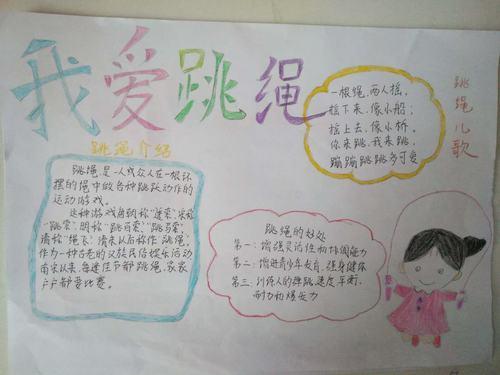 我爱跳绳
跳绳介绍
跳绳，是一人或众人在一根环
摆的绳中做各种跳跃动作的
运动游戏。
这种游戏唐朝称"透索"，宋称
"跳索"，明称"跳百索""跳马索"，
清称"绳飞"，清末以后称作 跳绳，
作为一种古老的汉族民俗娱乐活动
南宋以来，每逢佳节都跳绳，家家
户户都要比赛。
一根绳，两人摇，
摇下来，像小船；
摇上去，像小桥。
你来跳，我来跳，
蹦蹦跳跳多可爱
跳绳儿歌
跳绳的好处
第一：增强灵活性和协调能力
第二：增进青少年发育，强身健体
第三：训练人的弹跳、速度、平衡、
耐力和爆发力